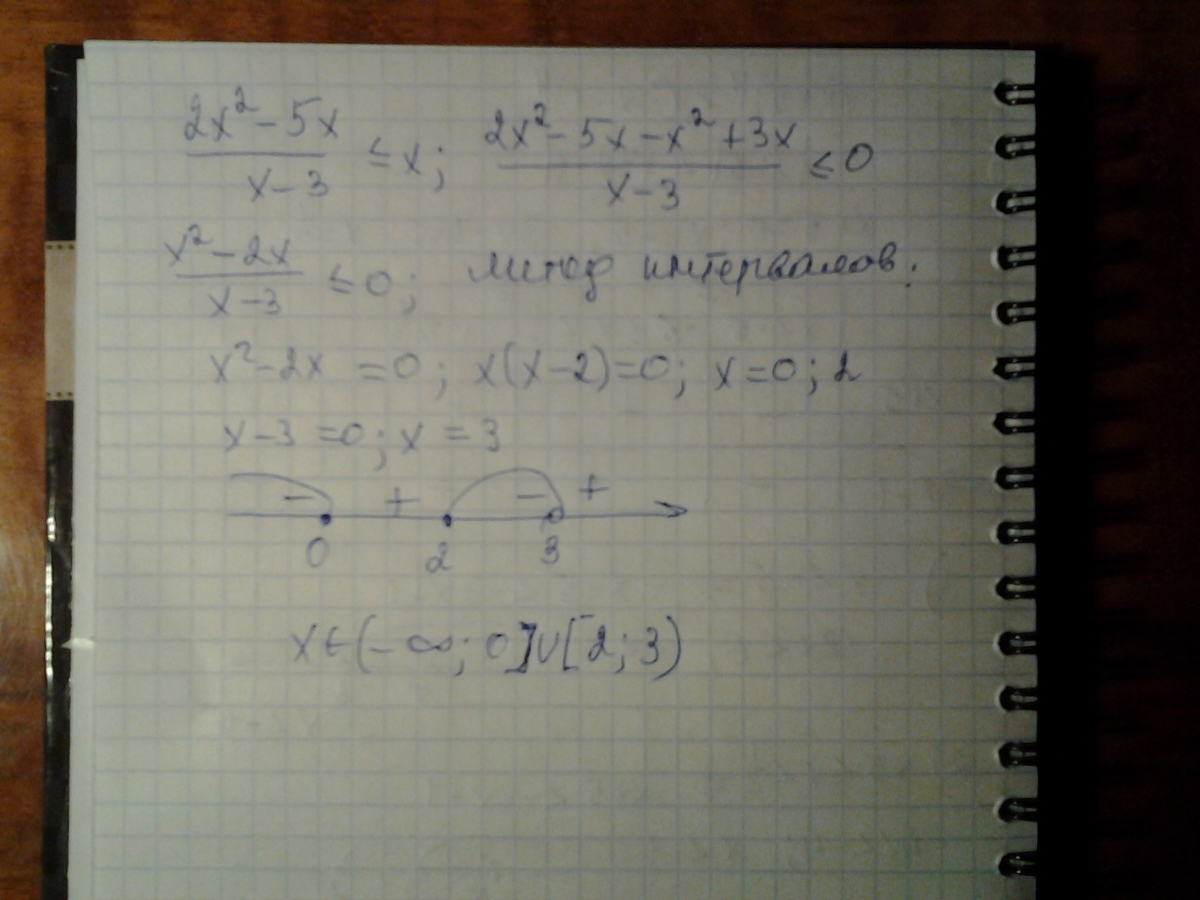 (2x² - 5x)/(x - 3) ≤ x; (2x² - 5x - x² + 3x)/(x - 3) ≤ 0
(x² - 2x)/(x - 3) ≤ 0; метод интервалов.
x² - 2x = 0; x(x - 2) = 0; x = 0; 2
x - 3 = 0; x = 3
- + - +
0 2 3
x ∈ (-∞; 0] ∪ [2; 3)